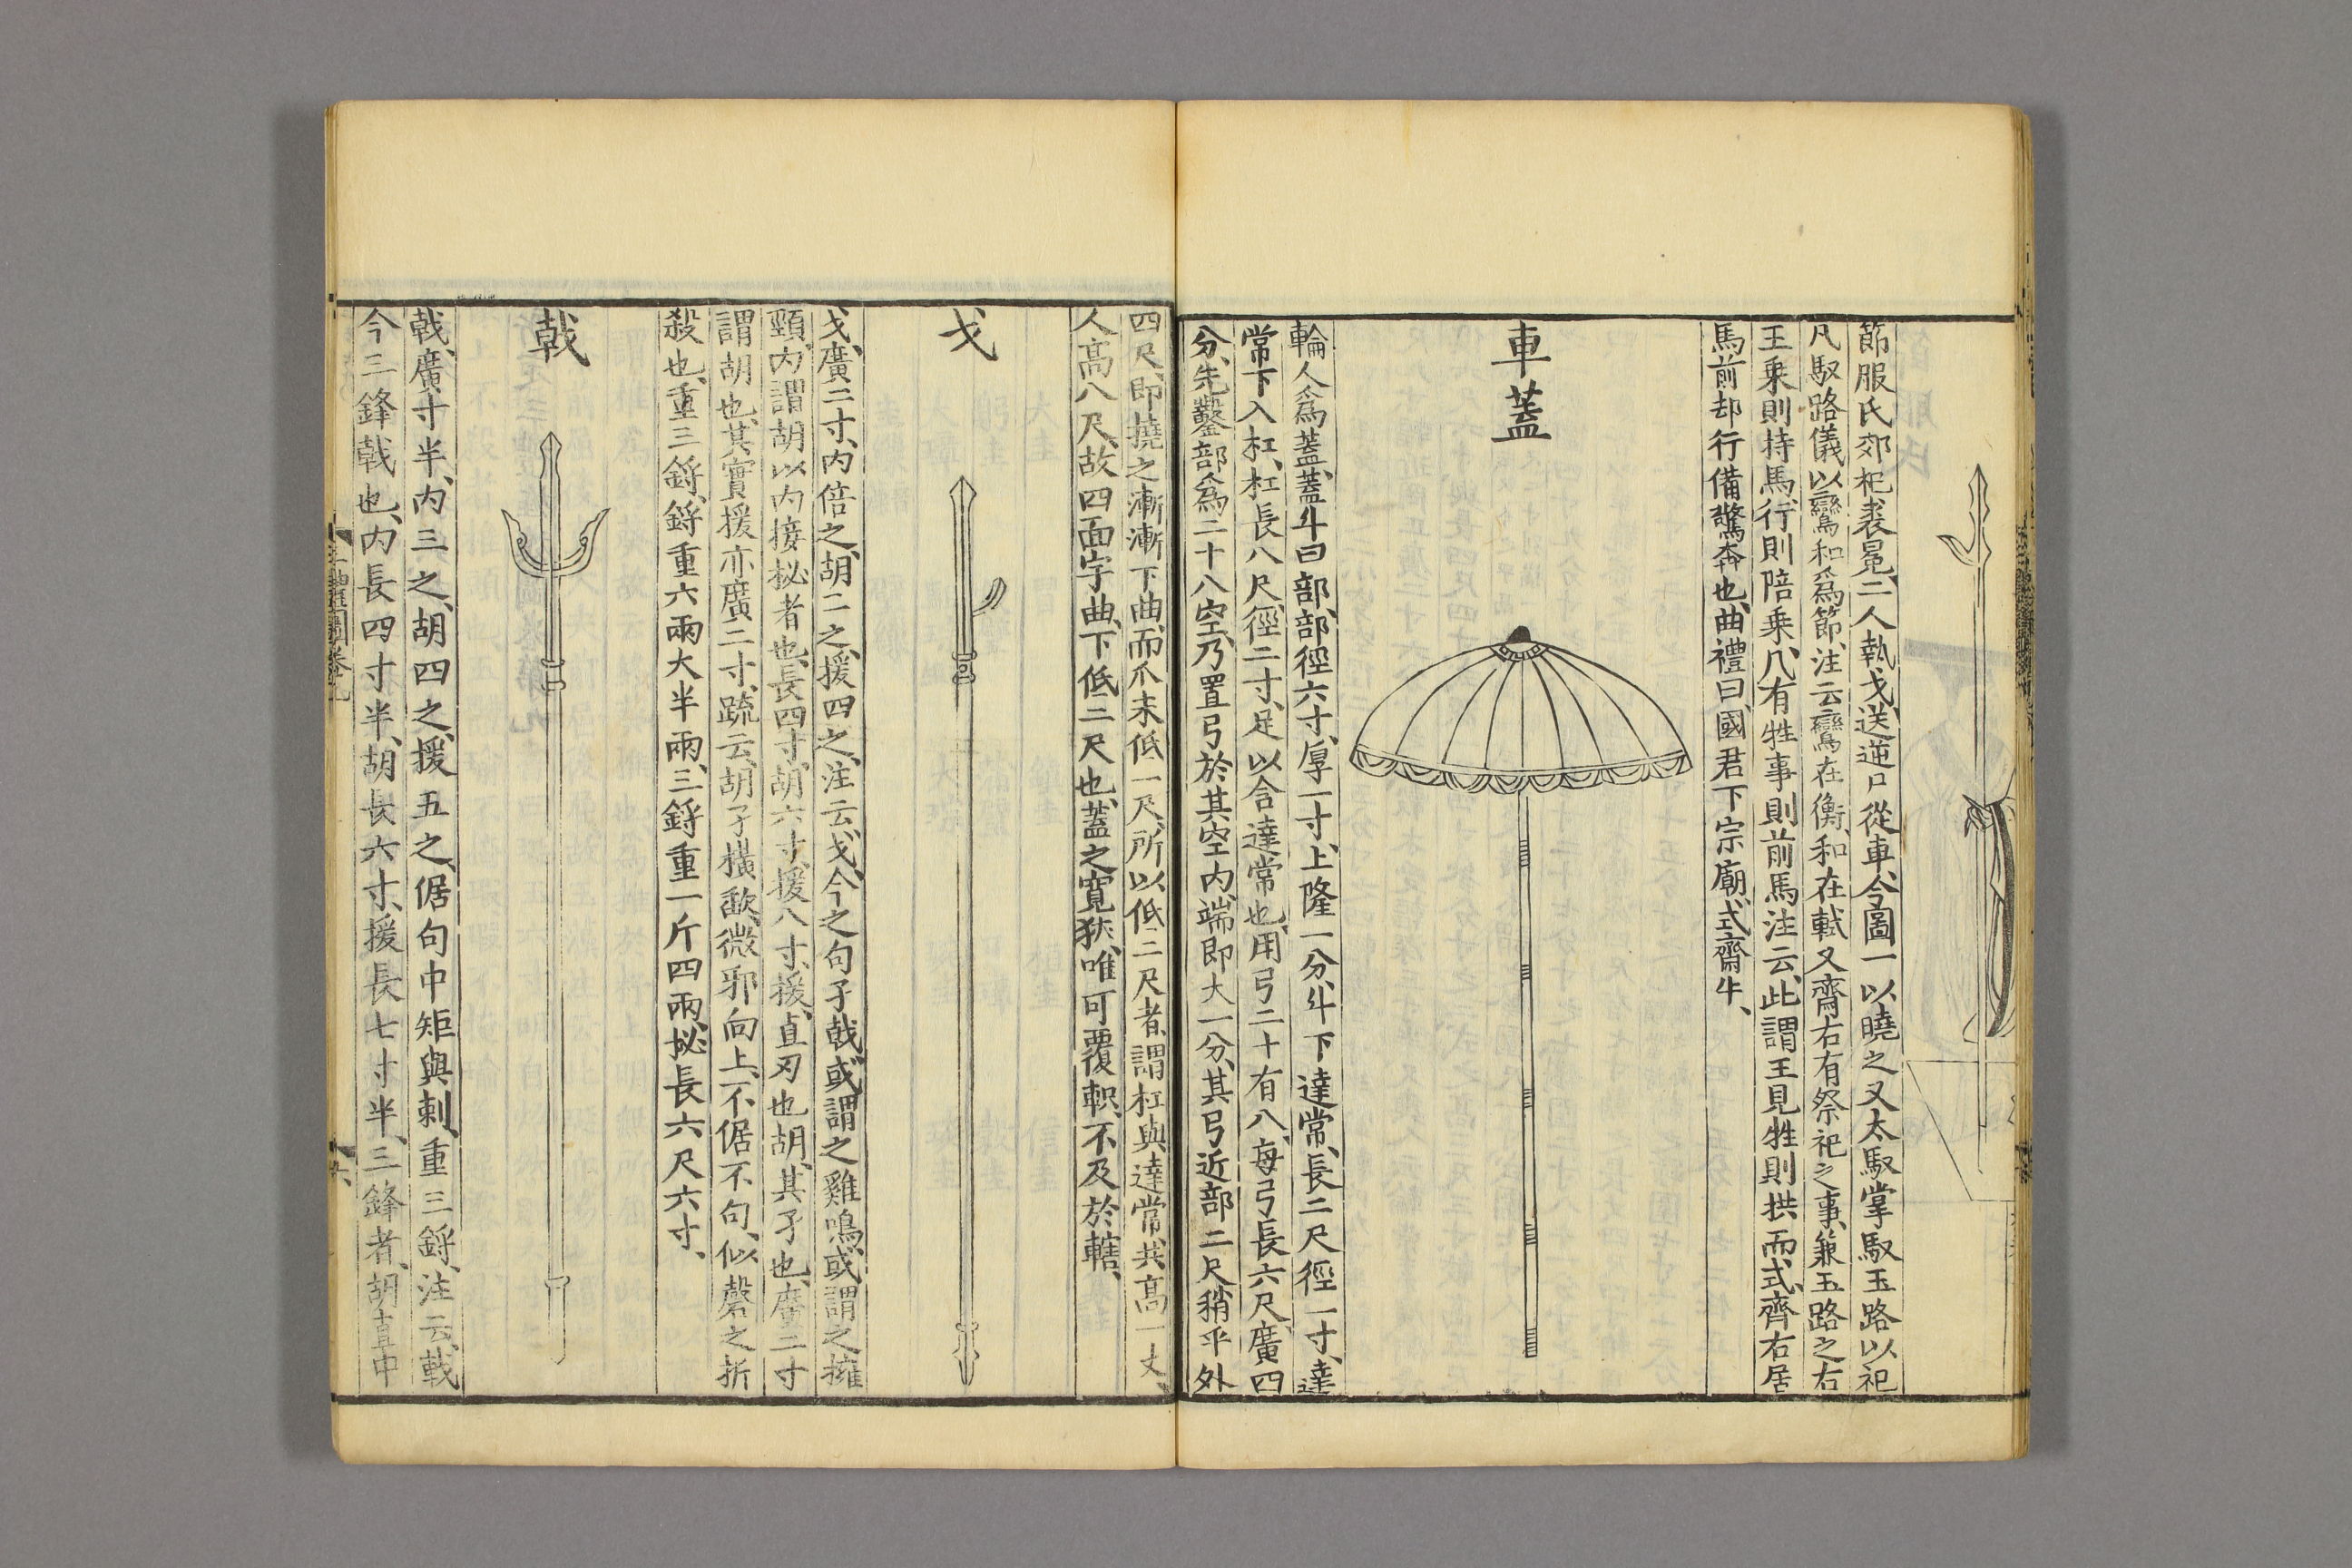 節服氏郊祀裘冕二人執戈送逆尸從車今圖一以曉之又太馭掌馭玉路以祀
凡馭路儀以鸞和爲節注云鸞在衡和在軾又齋右有祭祀之事兼玉路之右
王乘則持馬行則陪乘凡有牲事則前馬注云此謂王見牲則拱而式齊右居
馬前却行備驚奔也曲禮曰國君下宗廟式齋牛
車蓋
輪人爲蓋蓋斗曰部部徑六寸厚一寸上隆一分斗下達常長二尺徑一寸達
常下入杠杠長八尺徑二寸足以含達常也用弓二十有八每弓長六尺廣四
分先鑿部爲二十八空乃置弓於其空內端即大一分其弓近部二尺稍平外
四尺即撓之漸漸下曲而爪末低二尺所以低二尺者謂杠與達常共高一丈
人高八尺故四面宇曲下低二尺也蓋之寬狹唯可覆軹不及於轄
戈
戈廣二寸內倍之胡三之援四之注云戈今之句孑戟或謂之雞鳴或謂之擁
頸內謂胡以內接柲者也長四寸胡六寸援八寸援直刃也胡其孑也廣二寸
謂胡也其實援亦廣二寸疏云胡孑橫㰼微邪向上不倨不句似磬之折
殺也重三鋝鋝重六兩大半兩三鋝重一斤四兩柲長六尺六寸
戟
戟廣寸半內三之胡四之援五之倨句中矩與刺重三鋝注云戟
今三鋒戟也內長四寸半胡長六寸援長七寸半三鋒者胡直中
三禮圖卷九
六